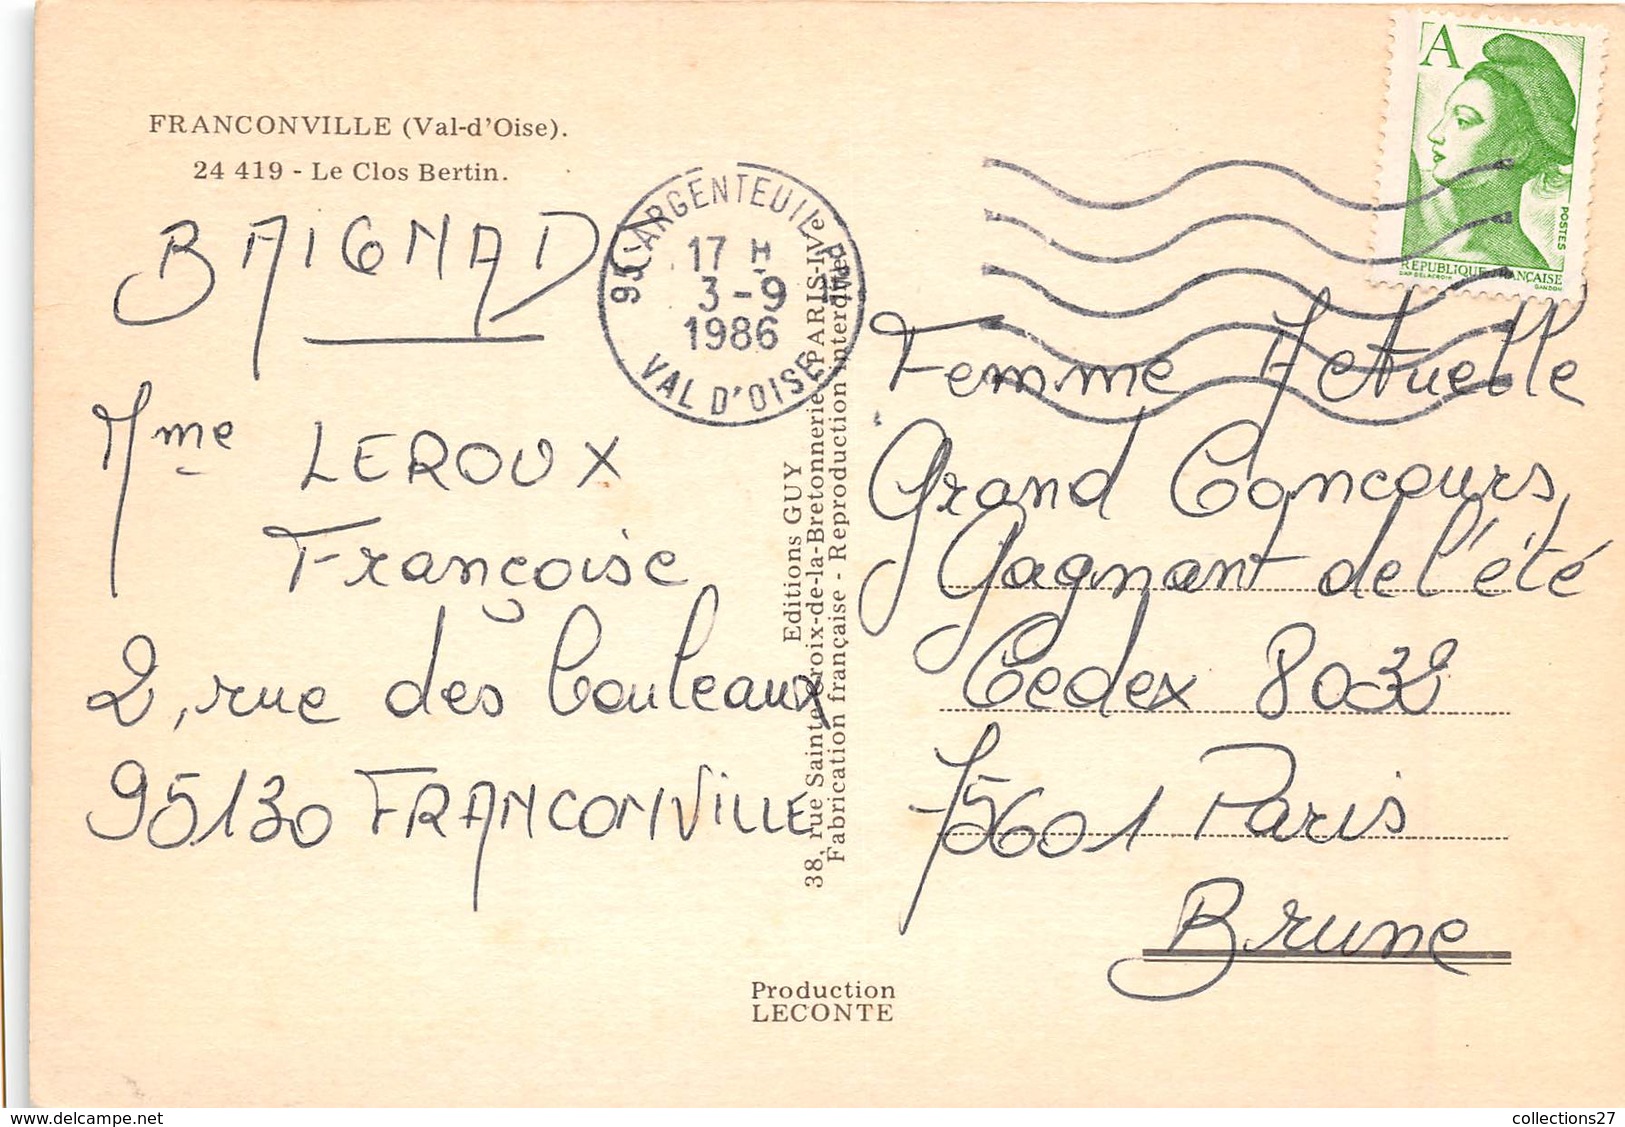 FRANCONVILLE (Val-d'Oise).
24 419 - Le Clos Bertin.
BAIGNADE
Mme LEROUX
Françoise
2, rue des Couleaux
95130 FRANCONVILLE
95 ARGENTEUIL PPAL
17 H
3-9
1986
VAL D'OISE
Editions GUY
38, rue Sainte-Croix-de-la-Bretonnerie PARIS-IVe
Fabrication française - Reproduction interdite
A
POSTES
RÉPUBLIQUE FRANÇAISE
D'AP DELACROIX
GANDON
Femme Actuelle
Grand Concours
Gagnant de l'été
Cedex 8032
75601 Paris
Brune
Production
LECONTE
www.delcampe.net
collections27